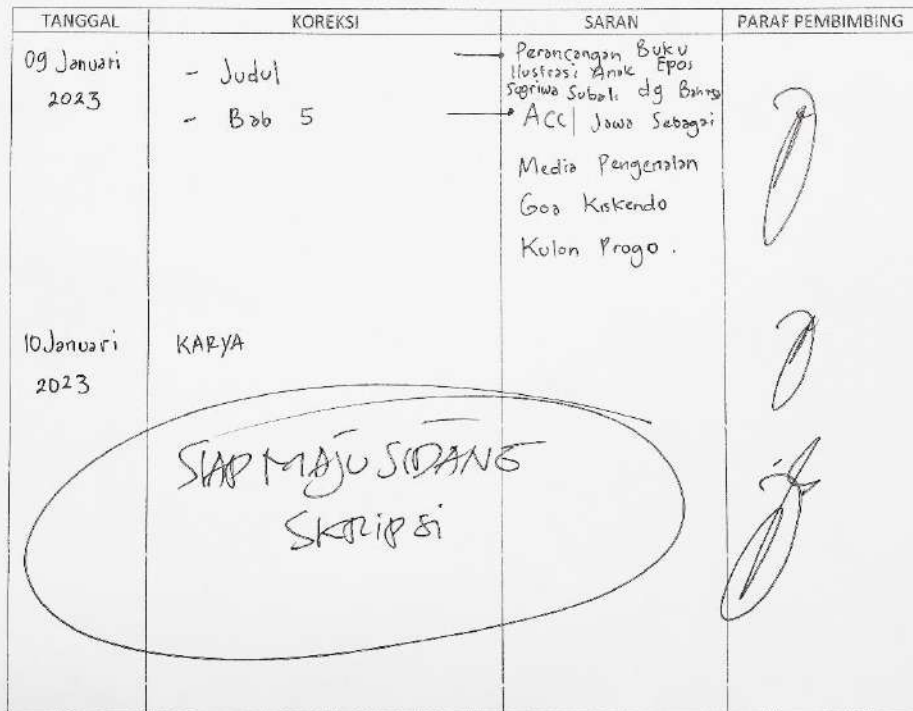 TANGGAL KOREKSI SARAN PARAF PEMBIMBING
09 Januari
2023
- Judul
- Bab 5
Perancangan Buku
Ilustrasi Anak Epos
Sugriwa Subali dg Bahasa
Acc | Jawa Sebagai
Media Pengenalan
Goa Kiskendo
Kulon Progo.
10 Januari
2023
KARYA
SIAP MAJU SIDANG
SKRIPSI